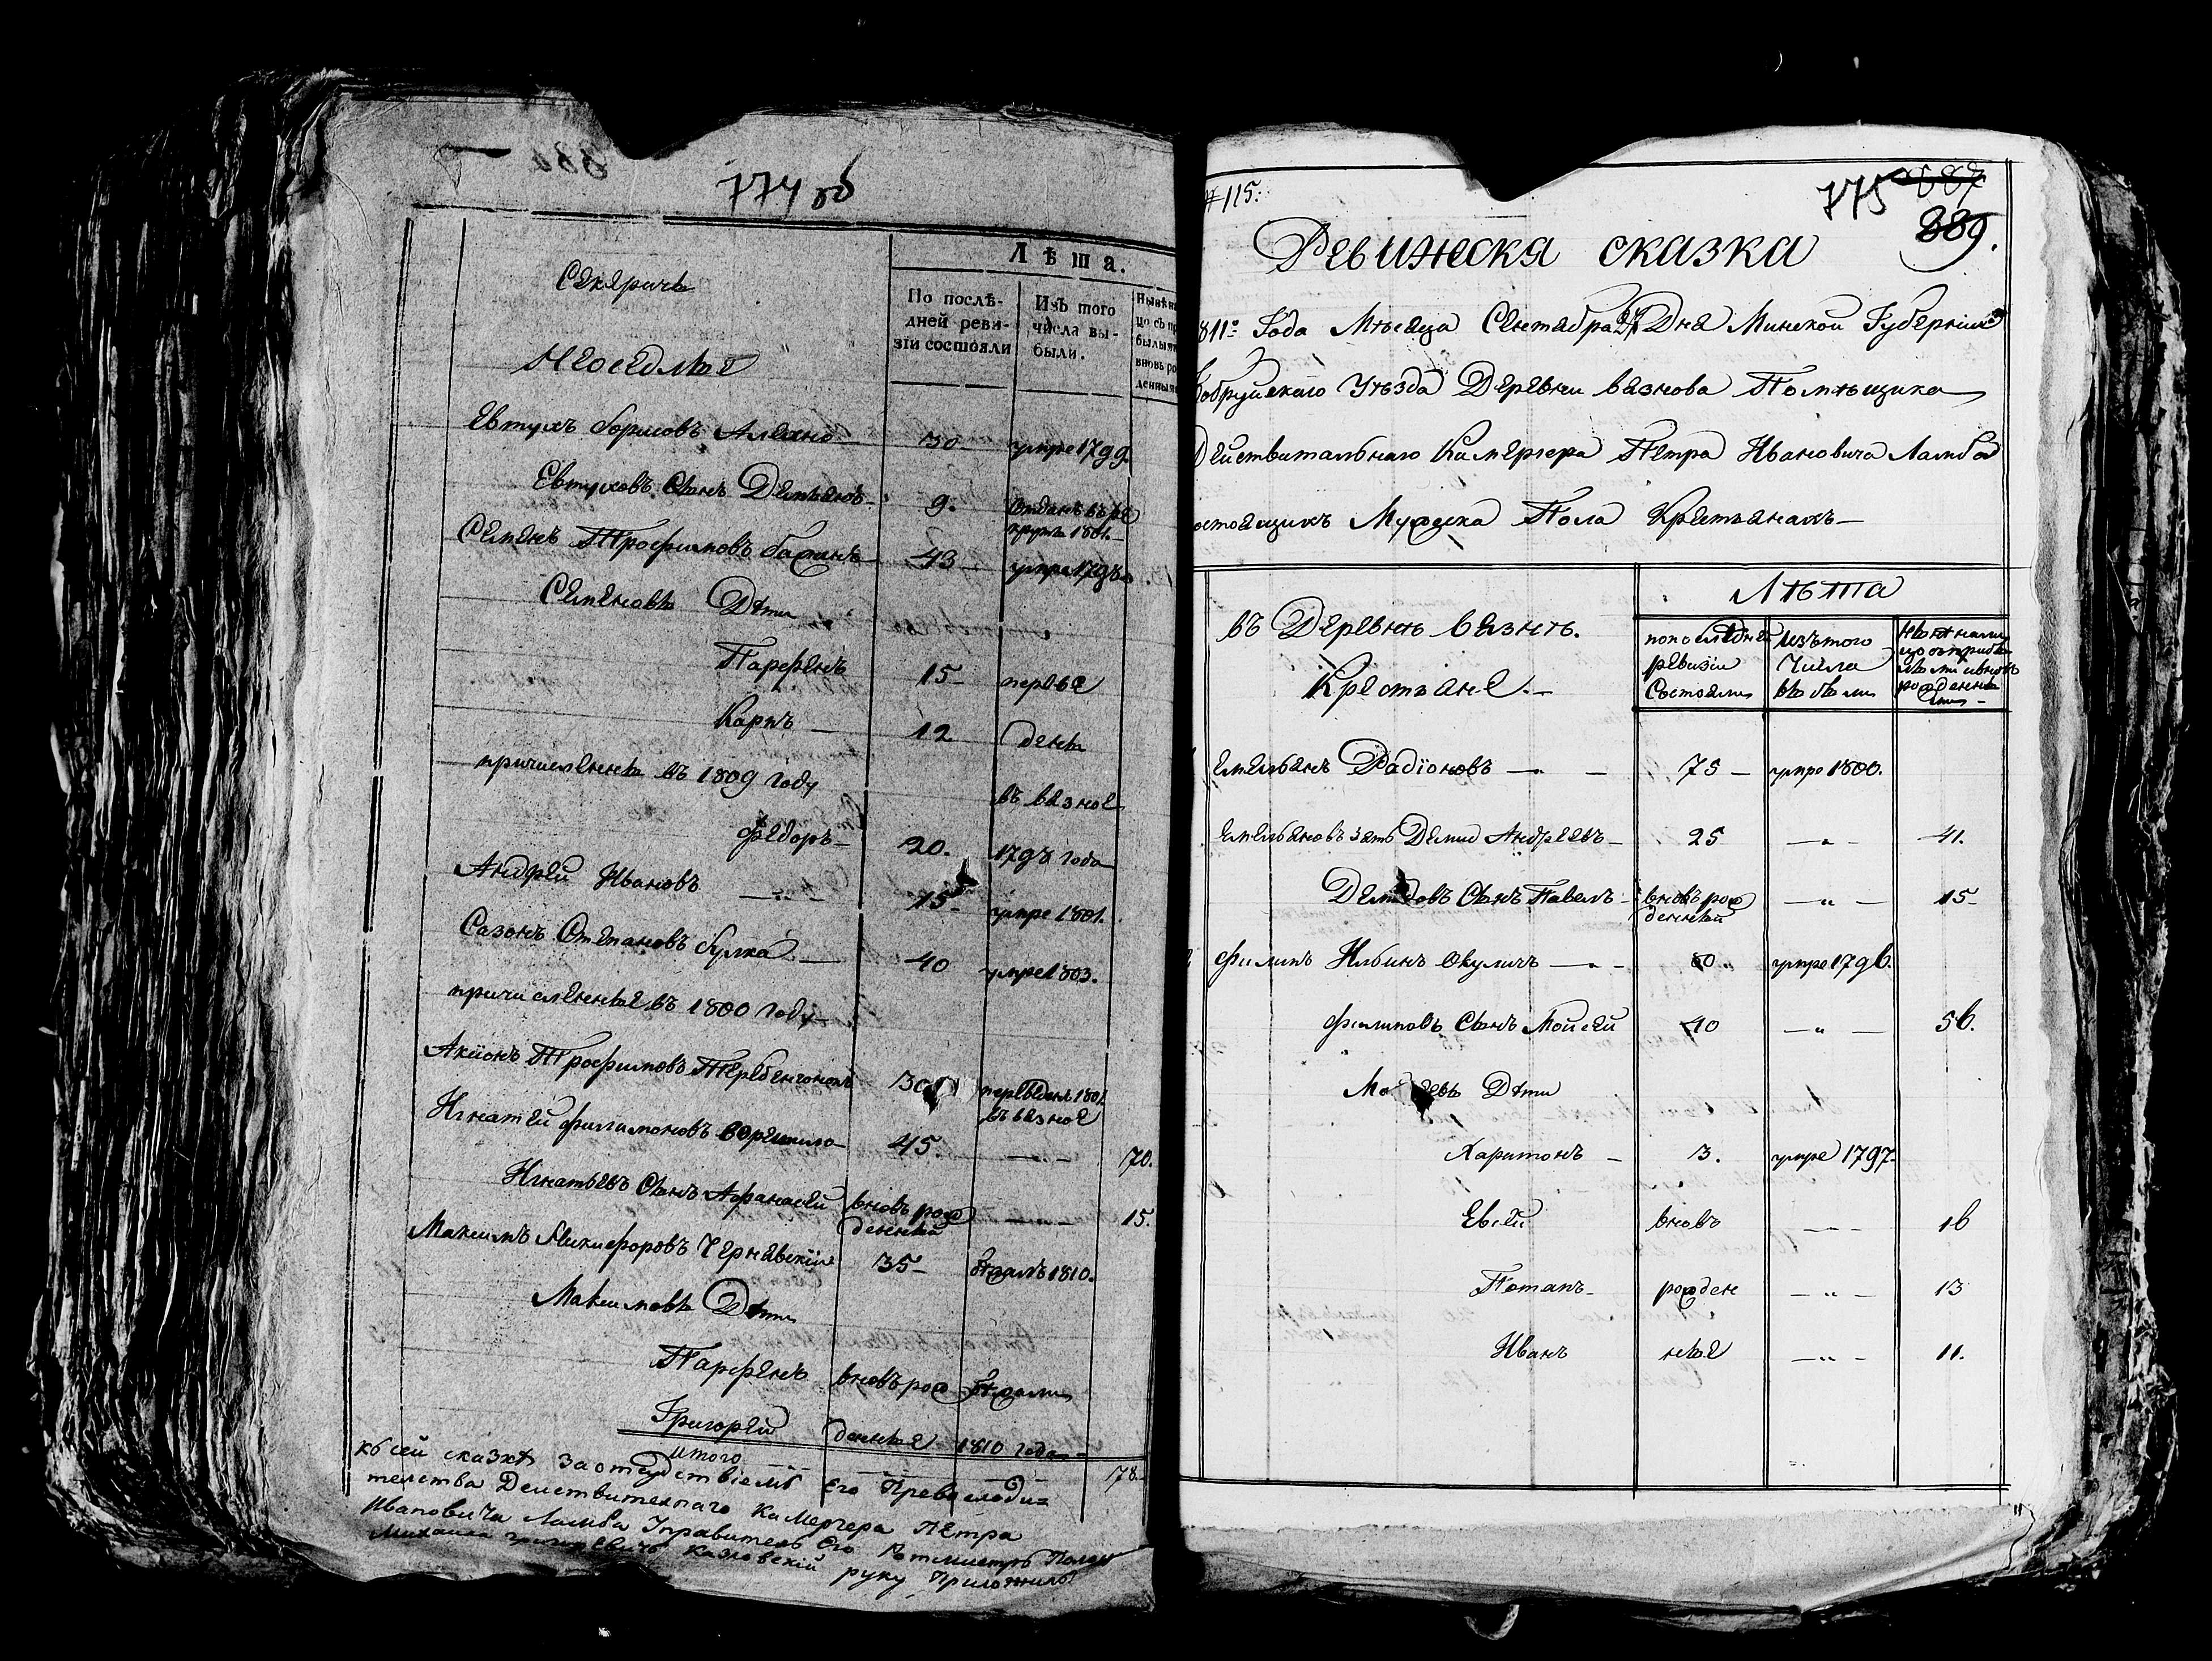 774 об
Лѣта.
По послѣ-
дней реви-
зіи состояли
Изъ того
числа вы-
были.
Секеричь
Неоседлые
Евтухъ Борисовъ 50 умре 1799.
Евтуховъ Сынъ Демьянъ 9. отданъ въ ре
крути 1801.
Семенъ Трофимовъ 43 умре
Семеновы Дѣти
Парфенъ 15 переве
Карпъ 12 дены
причисленны въ 1809 году въ вязное
Федоръ 20. 1798 года
Андрей Ивановъ 15 умре 1801.
Сазонъ Степановъ булка 40 умре 1803.
причисленные въ 1800 году
Трофимовъ 30 переведенъ 1801
въ вязное
Игнатей Филимоновъ 45 70.
Игнатьевъ Сынъ Афанасей вновь рож 15.
денный
Максимъ Никифоровъ Чернявскій 35 бѣжалъ 1810.
Максимовы Дѣти
Парфенъ вновь рож бѣжали
Григорей денные 1810 года
итого 78.
къ сей сказкѣ за отсудствіемъ Его Превосходи=
телства Действителнаго Камергера Петра
Ивановича Ламба Управитель Его Ротмистръ
Казловскій руку Приложилъ
#115.
775 887
889.
Ревижская сказка
1811го Года Мѣсяца Сентября Дня Минской Губерніи
Бобруйскаго Уѣзда Деревни вязнова Помѣщика
Действительнаго Камергера Петра Ивановича Ламба
состоящихъ Мужеска Пола Крестьянахъ
Лѣта
въ Деревнѣ вязнѣ.
Крестьяне.
попоследней
ревизіи
Состояли
изътого
Числа
выбыли
Емельянъ Радіоновъ 75 умре 1800.
Емельяновъ зять Демид Андреевъ 25 41.
Демидовъ Сынъ Павелъ вновь рож 15
денный
Филипъ Ильинъ Окуличъ 80 умре 1796.
Филиповъ Сынъ Мойсей 40 56.
Дѣти
Харитонъ 3. умре 1797.
Евсей вновь 16
Потапъ рожден 13
Иванъ ные 11.